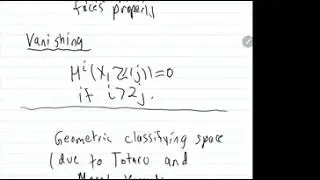 faces properly
Vanishing
Hⁱ(X, ℤ(j))=0
if i>2j.
Geometric classifying space
(due to Totaro and